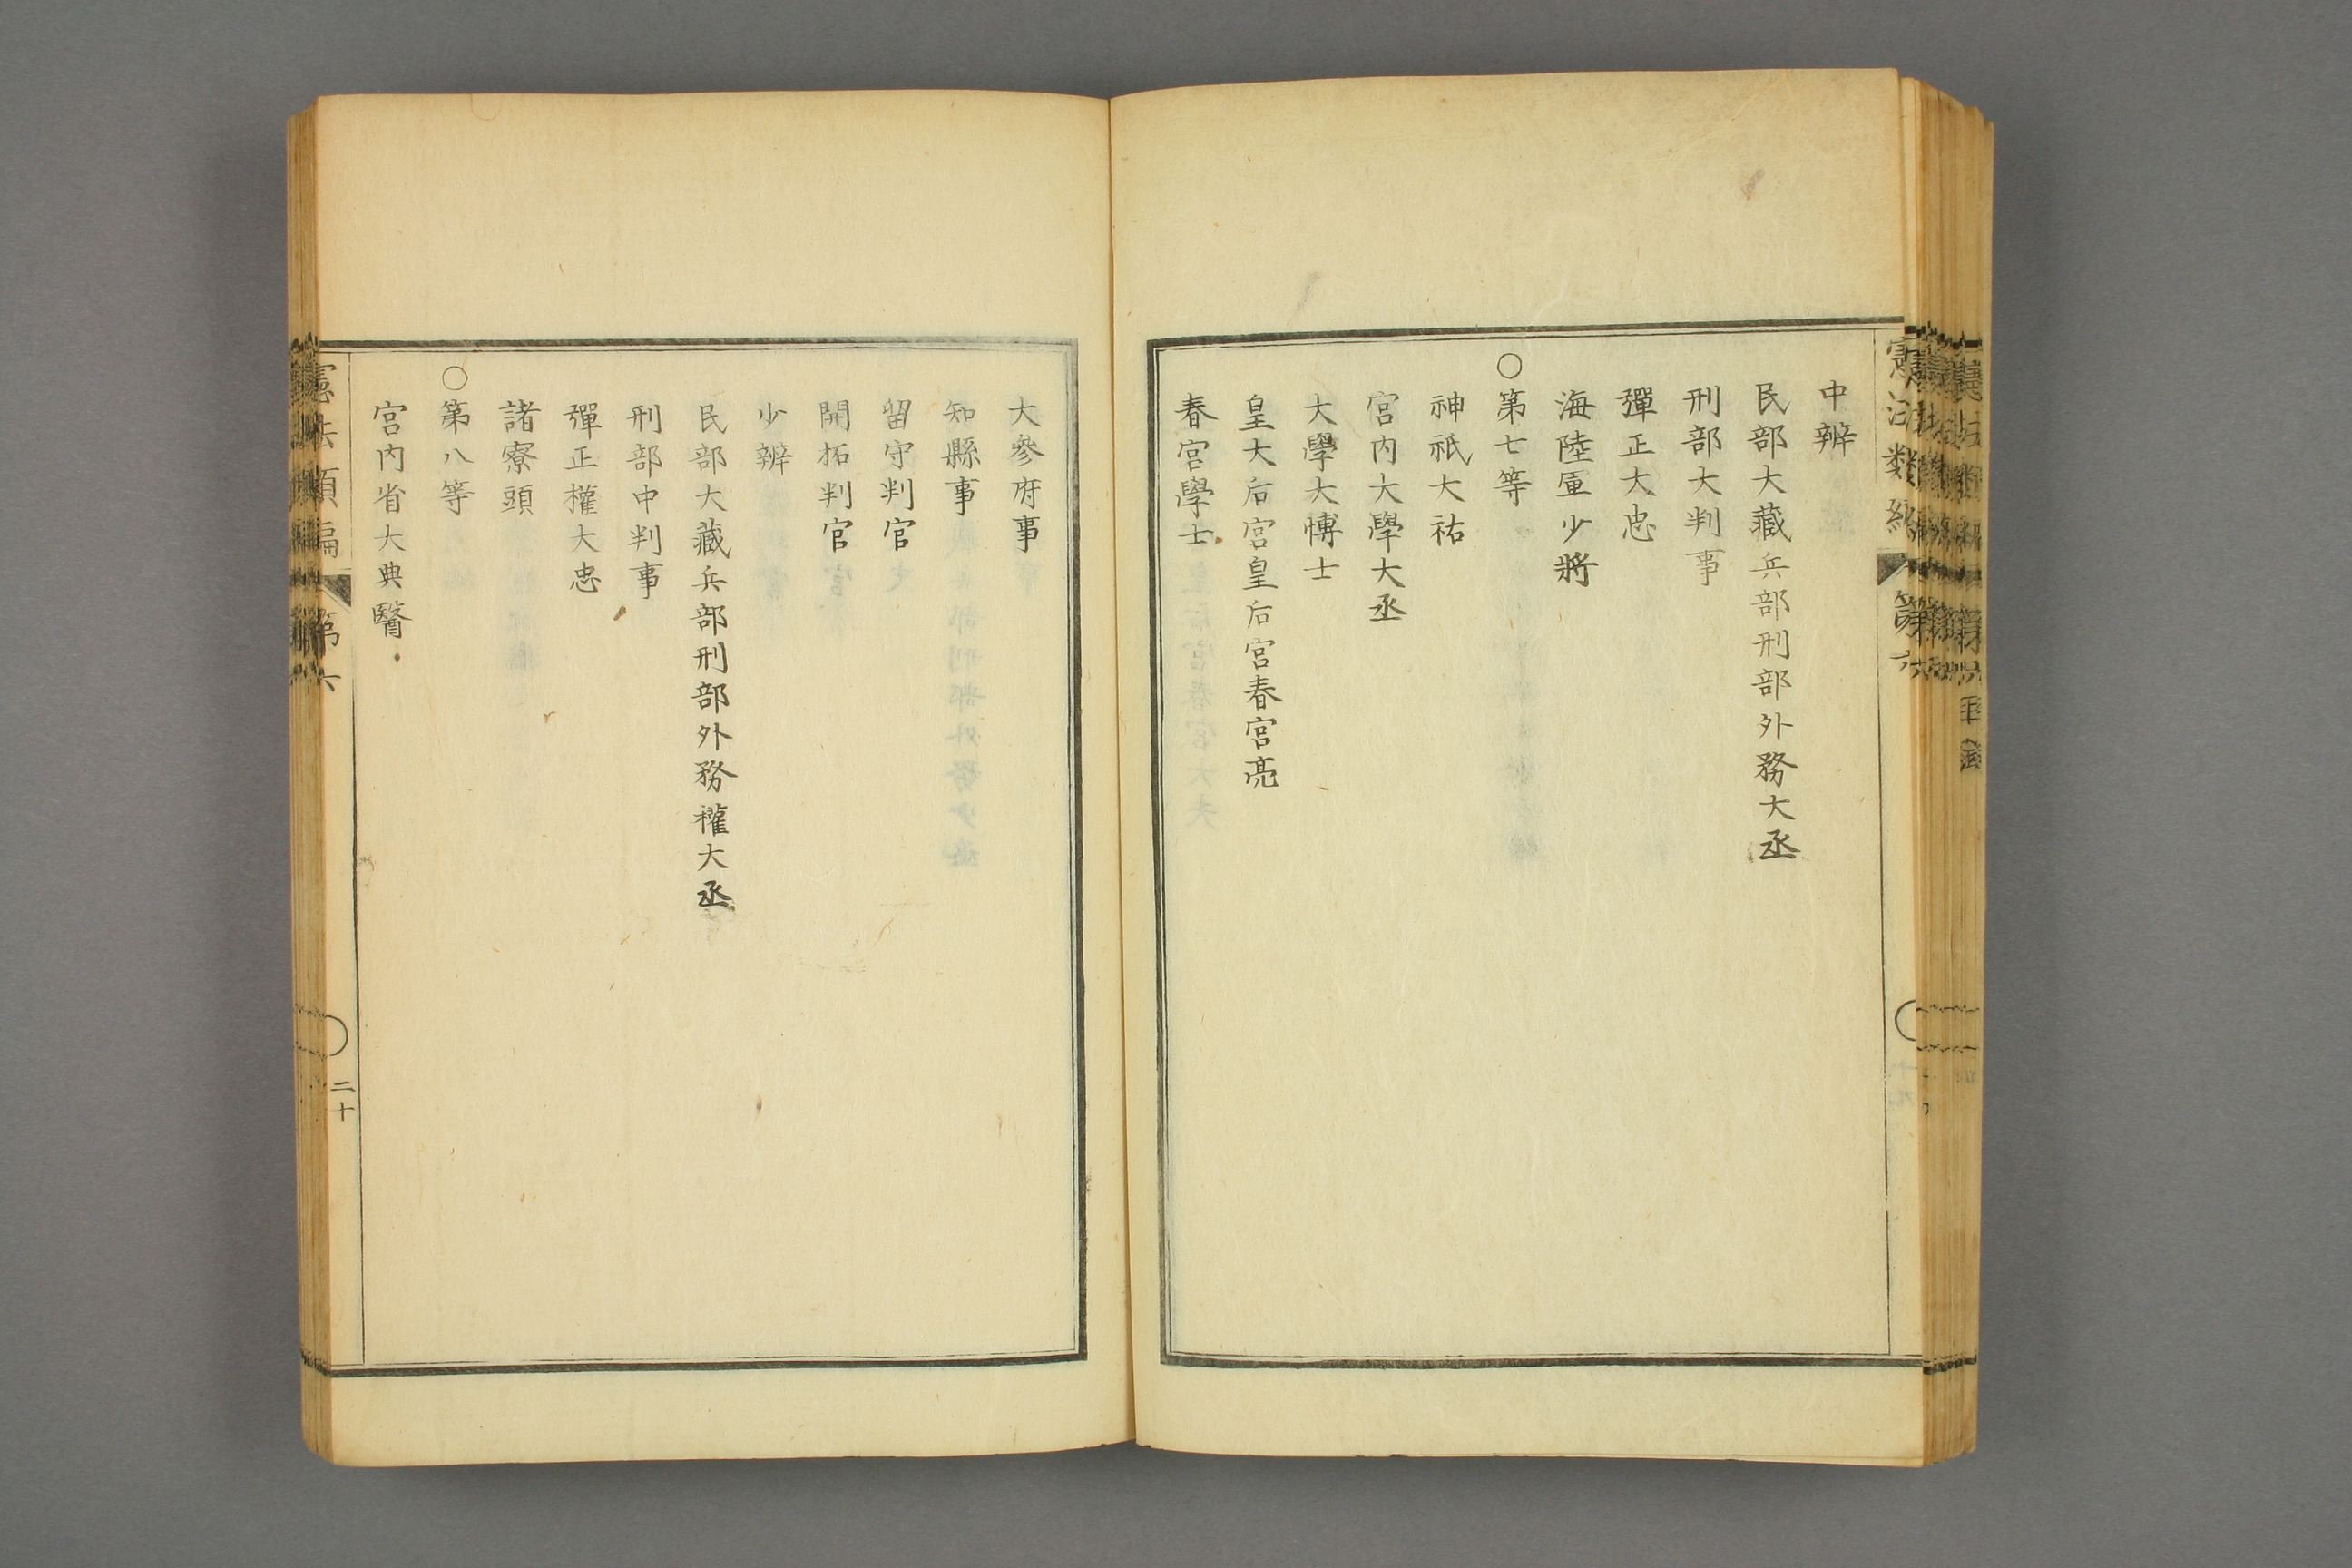 憲法類編 第六
中辨
民部大藏兵部刑部外務大丞
刑部大判事
彈正大忠
海陸軍少將
○第七等
神祇大祐
宮内大學大丞
大學大博士
皇大后宮皇后宮春宮亮
春宮學士
大參府事
知縣事
留守判官
開拓判官
少辨
民部大藏兵部刑部外務權大丞
刑部中判事
彈正權大忠
諸寮頭
○第八等
宮内省大典醫
憲法類編 第六 ○ 二十